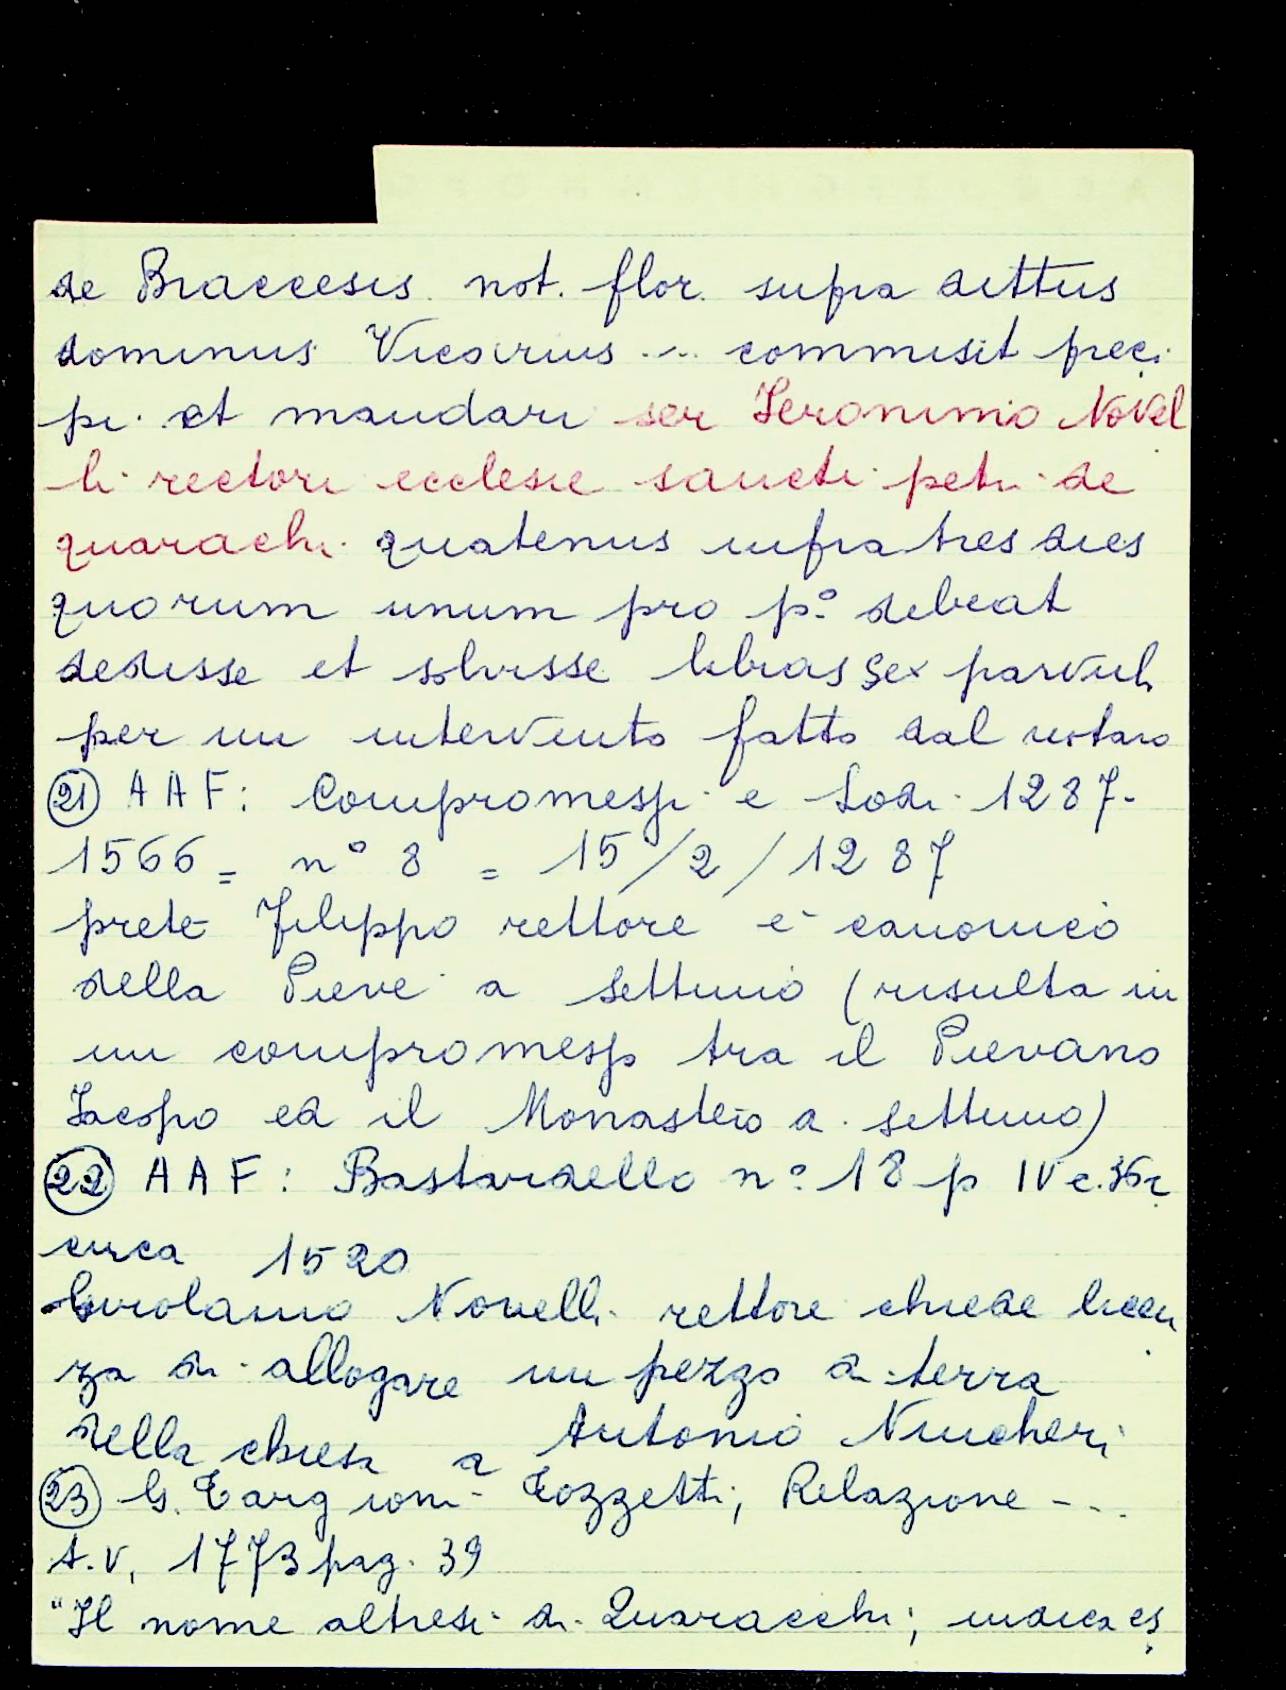 de Braccesis not. flor. supra dittus
dominus Vicarius ... commisit preci
pi et mandari ser Jeronimo Novel
li rectori ecclesie sancti petri de
quarachi quatenus infra tres dies
quorum unum pro p.º debeat
dedisse et solvisse libras sex parvuli
per un intervento fatto dal notaro
(21) AAF: Compromessi e Lodi 1287-
1566 = nº 8 = 15/2/1287
prete Filippo rettore e canonico
della Pieve a Settimo (risulta in
un compromesso tra il Pievano
Jacopo ed il Monastero a Settimo)
(22) AAF: Bastardello nº 18 p IV c. 36r
circa 1520
Girolamo Novelli rettore chiede licen
za di allogare un pezzo di terra
della chiesa a Antonio Nincheri
(23) G. Targioni Tozzetti, Relazione ...
t. V, 1773 pag. 39
"Il nome altresi di Quaracchi, indica es